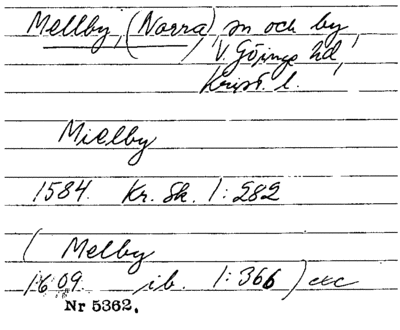 Mellby, (Norra) sn och by,
V. Göinge hd,
Krist. l.
Mielby
1584. Kr. Sk. 1:282
( Melby
1609. ib. 1:366 ) etc
Nr 5362.